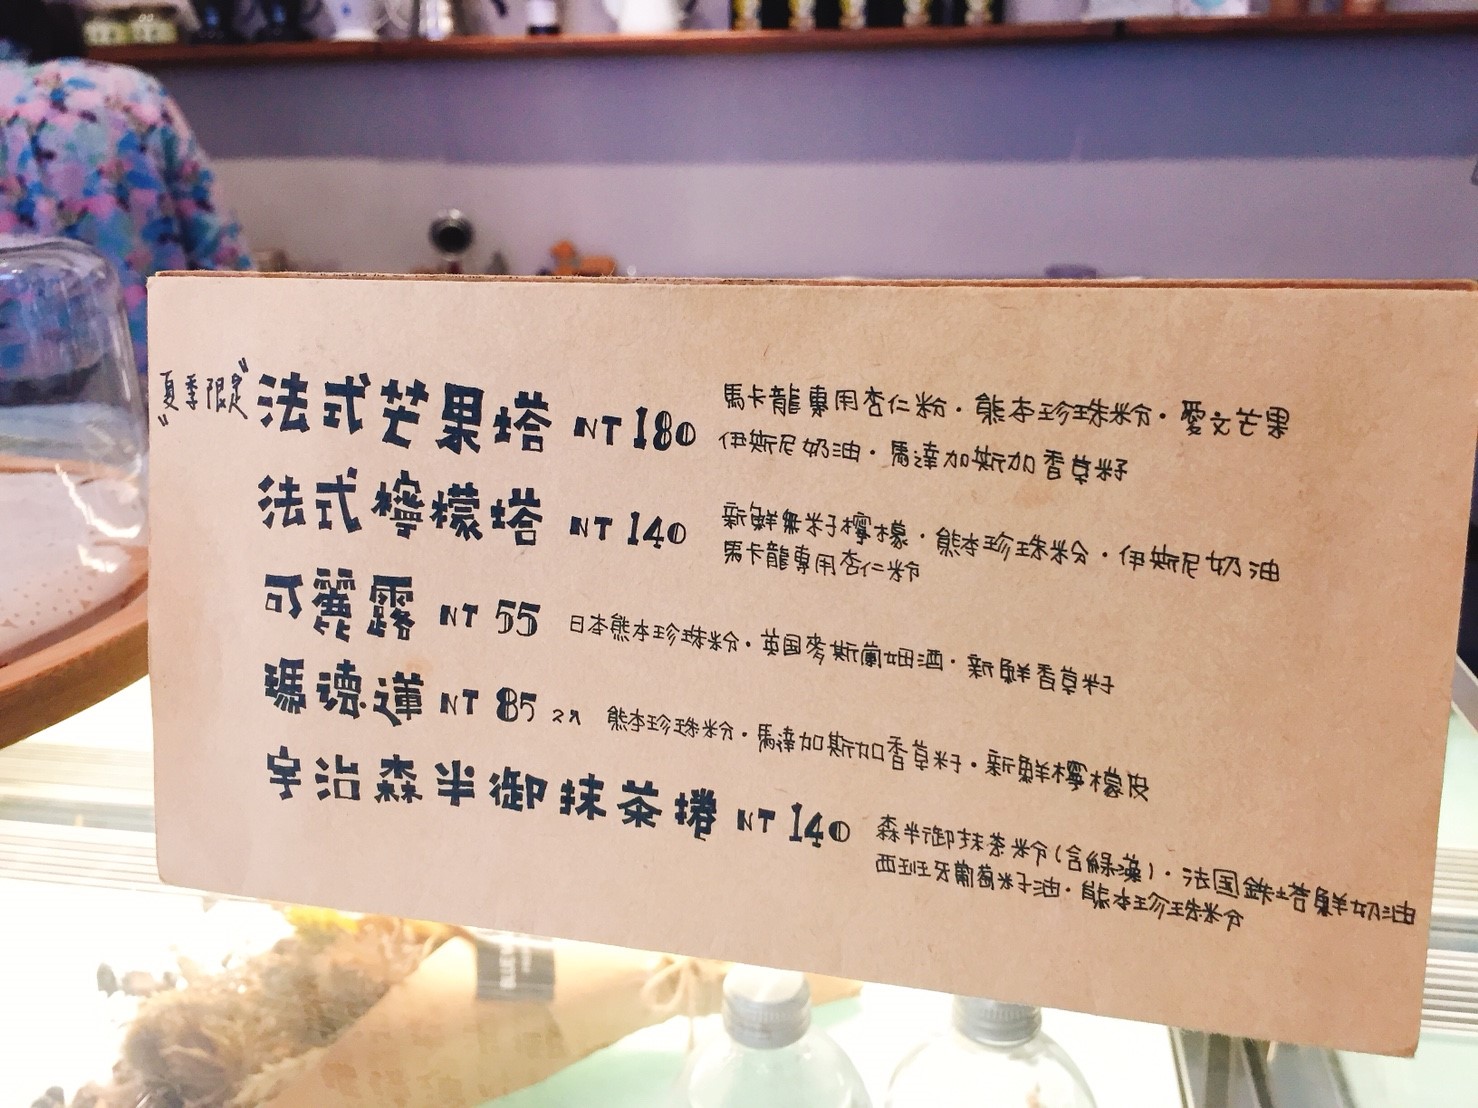 "夏季限定"法式芒果塔 NT 180 馬卡龍專用杏仁粉·熊本珍珠粉·愛文芒果
伊斯尼奶油·馬達加斯加香草籽
法式檸檬塔 NT 140 新鮮無籽檸檬·熊本珍珠粉·伊斯尼奶油
馬卡龍專用杏仁粉
可麗露 NT 55 日本熊本珍珠粉·英国麥斯蘭姆酒·新鮮香草籽
瑪德蓮 NT 85 2入 熊本珍珠粉·馬達加斯加香草籽·新鮮檸檬皮
宇治森半御抹茶捲 NT 140 森半御抹茶粉(含綠藻)·法国鐵塔鮮奶油
西班牙葡萄籽油·熊本珍珠粉